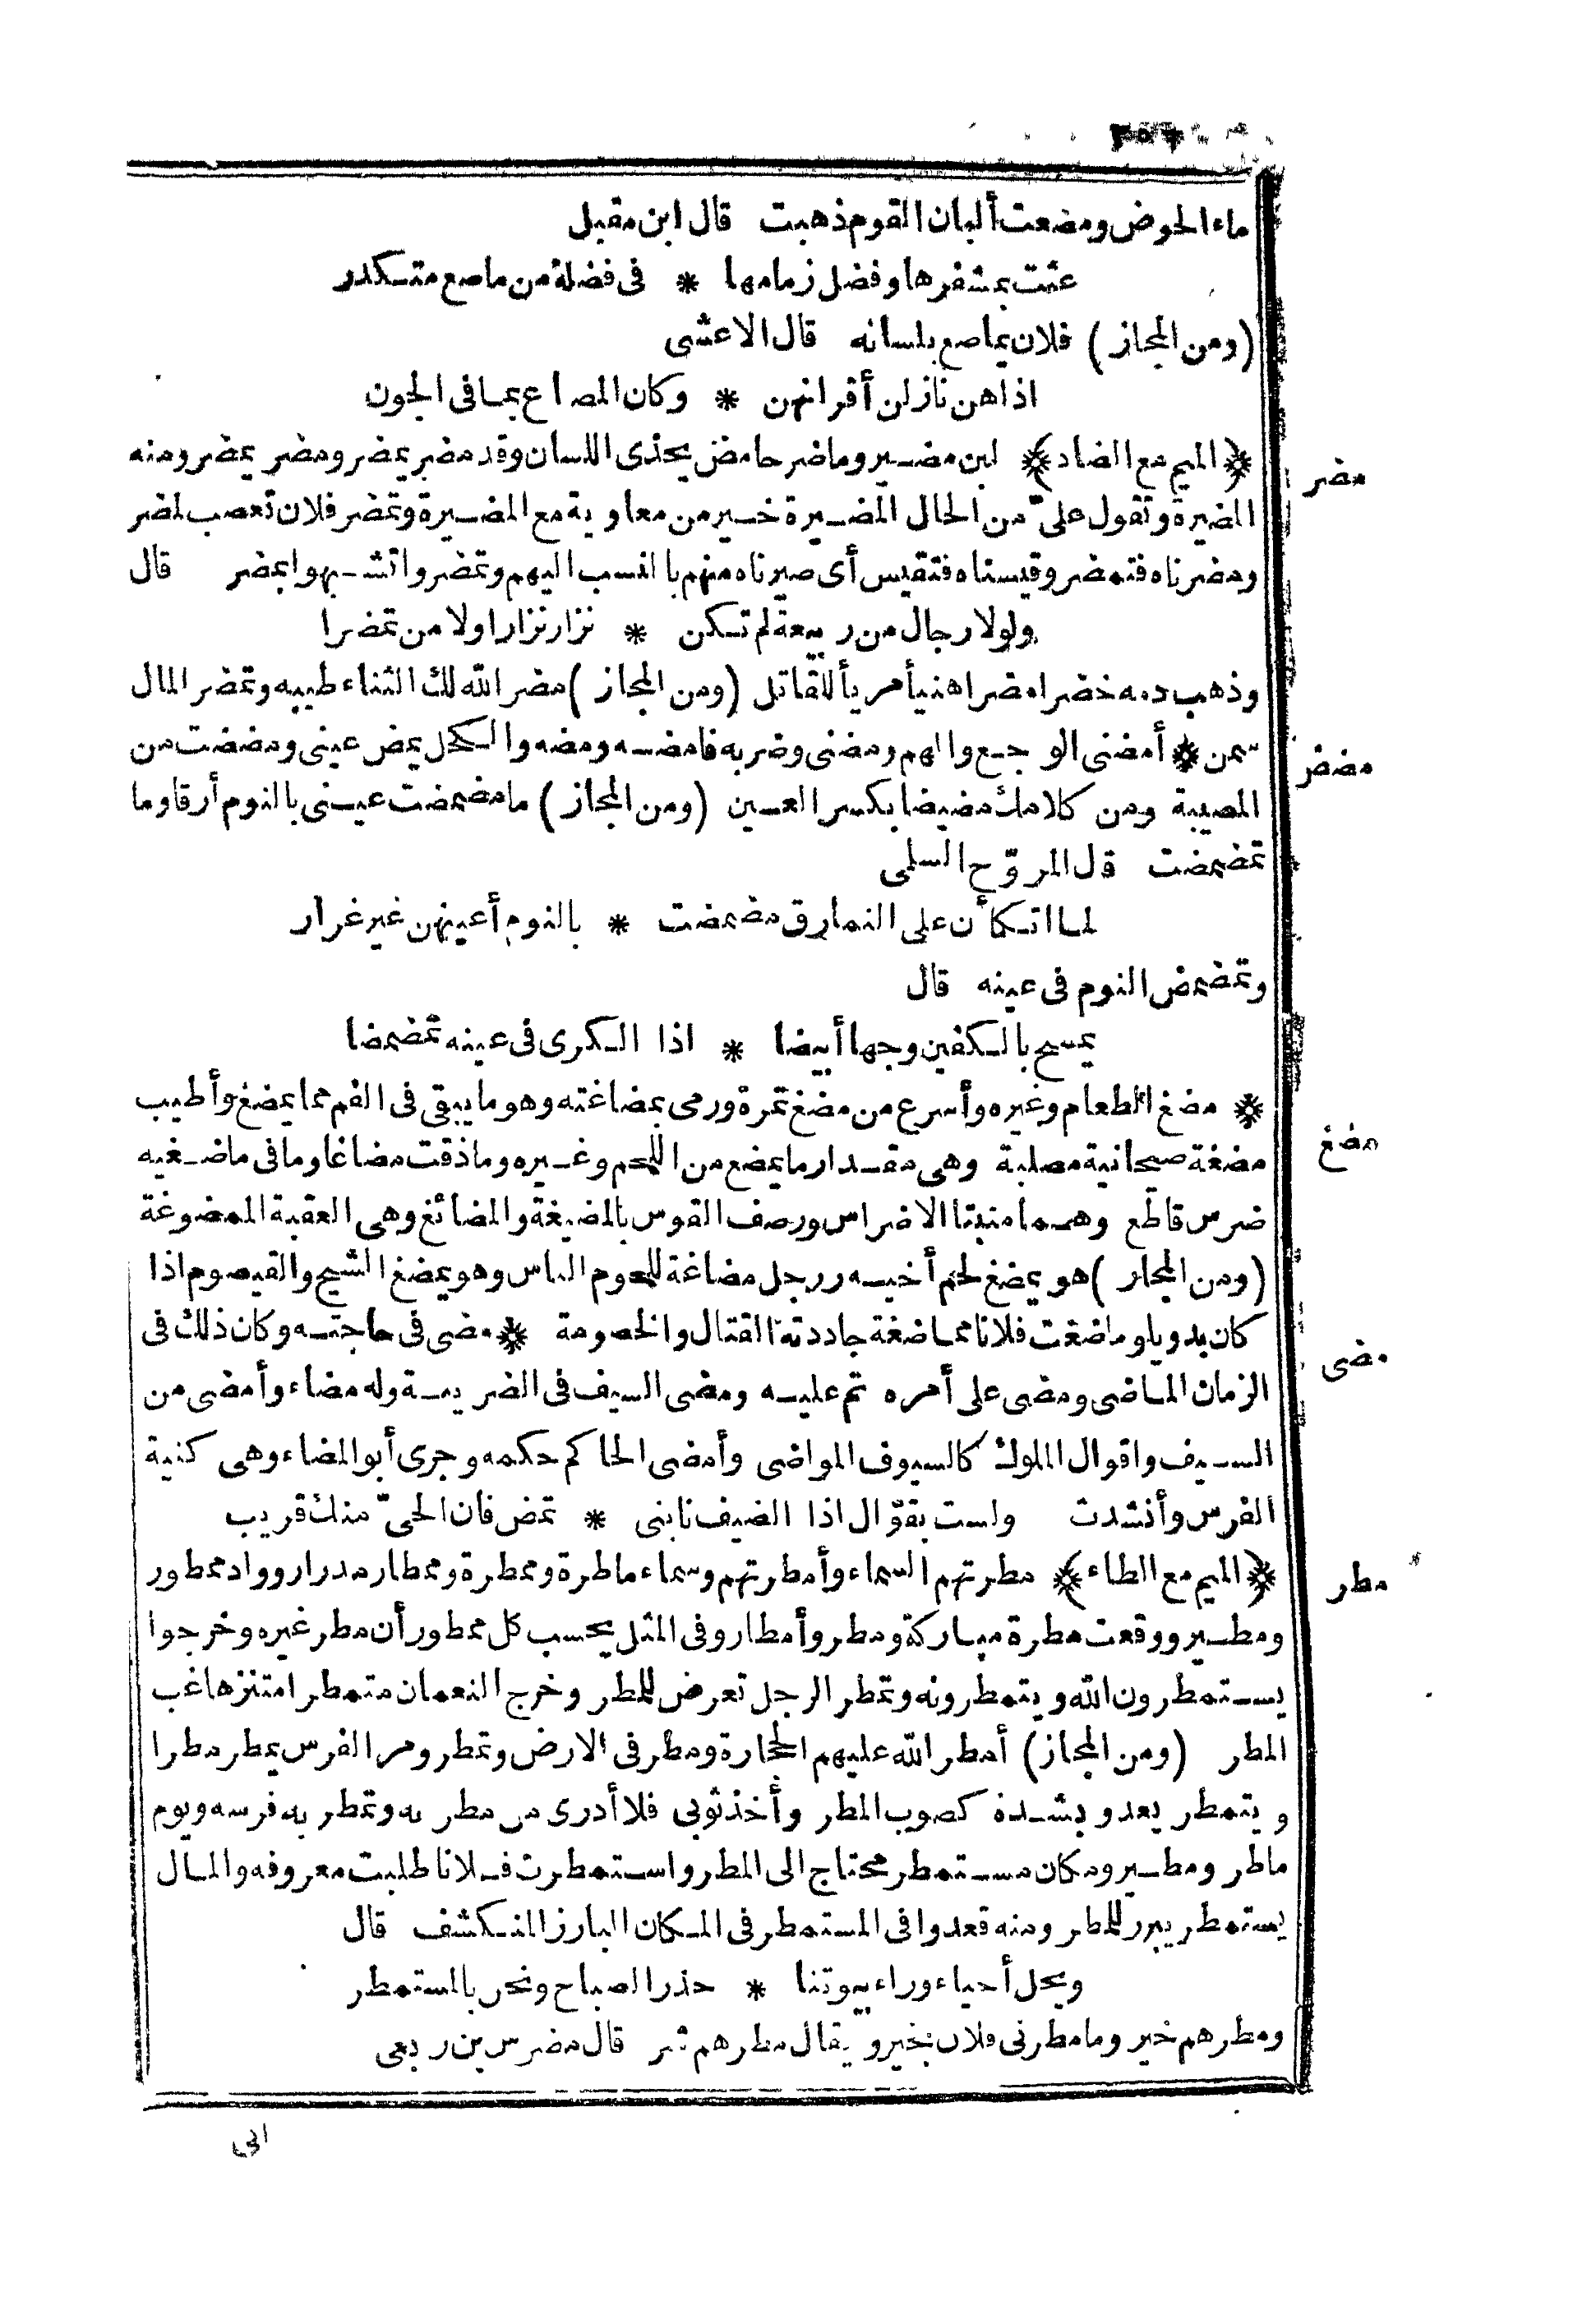 ماء الحوض ومضعت ألبان القوم ذهبت قال ابن مقبل
عثت بمشفرها وفضل زمامها * فى فضلة من ماصع متكدر
(ومن المجاز) فلان يماصع بلسانه قال الاعشى
اذا هن نازلن أقرانهن * وكان المصاع بما فى الجون
﴿الميم مع الضاد﴾ لبن مضير وماضر حامض يحذى اللسان وقد مضر يمضر ومضر يمضر ومنه
مضر
المضيرة وتقول علىّ من الحال المضيرة خير من معاوية مع المضيرة وتمضر فلان تعصب لمضر
ومضرناه فتمضر وقيسناه فتقيس أى صيرناه منهم با لنسب اليهم وتمضروا تشبهوا بمضر قال
ولولا رجال من ربيعة لم تكن * نزار نزارا ولا من تمضرا
وذهب دمه خضرا مضرا هنيأ مريأ للقاتل (ومن المجاز) مضر الله لك الثناء طيبه وتمضر المال
سمن * أمضنى الوجع والهم ومضنى وضربه فامضه ومضه والكحل يمض عينى ومضضت من
مضض
المصيبة ومن كلامك مضيضا بكسر العين (ومن المجاز) ما مضمضت عينى بالنوم أرقا وما
تمضمضت قال المروّح السلمى
لما اتكأن على النمارق مضمضت * بالنوم أعينهن غير غرار
وتمضمض النوم فى عينه قال
يمسح بالكفين وجها أبيضا * اذا الكرى فى عينه تمضمضا
* مضغ الطعام وغيره وأسرع من مضغ تمرة ورمى بمضاغته وهو ما يبقى فى الفم مما يمضغ وأطيب
مضغ
مضغة صيحانية مصلبة وهى مقدار ما يمضع من اللحم وغيره وما ذقت مضاغا وما فى ماضغيه
ضرس قاطع وهما منبتا الاضراس ورصف القوس بالمضيغة والمضائغ وهى العقبة الممضوغة
(ومن المجاز) هو يمضغ لحم أخيه ورجل مضاغة للحوم الناس وهو يمضغ الشيح والقيصوم اذا
كان بدويا وماضغت فلانا مماضغة جاددته القتال والخصومة * مضى فى حاجته وكان ذلك فى
مضى
الزمان الماضى ومضى على أمره تم عليه ومضى السيف فى الضريبة وله مضاء وأمضى من
السيف واقوال الملوك كالسيوف المواضى وأمضى الحاكم حكمه وجرى أبو المضاء وهى كنية
الفرس وأنشدت ولست بقوّال اذا الضيف نابنى * تمض فان الحىّ منك قريب
﴿الميم مع الطاء﴾ مطرتهم السماء وأمطرتهم وسماء ماطرة وممطرة وممطار مدرار وواد ممطور
مطر
ومطير ووقعت مطرة مباركة ومطر وأمطار وفى المثل يحسب كل ممطور أن مطر غيره وخرجوا
يستمطرون الله ويتمطرونه وتمطر الرجل تعرض للمطر وخرج النعمان متمطرا متنزها غب
المطر (ومن المجاز) أمطر الله عليهم الحجارة ومطر فى الارض وتمطر ومر الفرس يمطر مطرا
ويتمطر يعدو بشدة كصوب المطر وأخذ ثوبى فلا أدرى من مطر به وتمطر به فرسه ويوم
ماطر ومطير ومكان مستمطر محتاج الى المطر واستمطرت فلانا طلبت معروفه والمال
يستمطر يبرز للمطر ومنه قعدوا فى المستمطر فى المكان البارز المنكشف قال
ويحل أحياء وراء بيوتنا * حذر الصباح ونحن بالمستمطر
ومطرهم خير وما مطرنى فلان بخير ويقال مطرهم شر قال مضرس بن ربعى